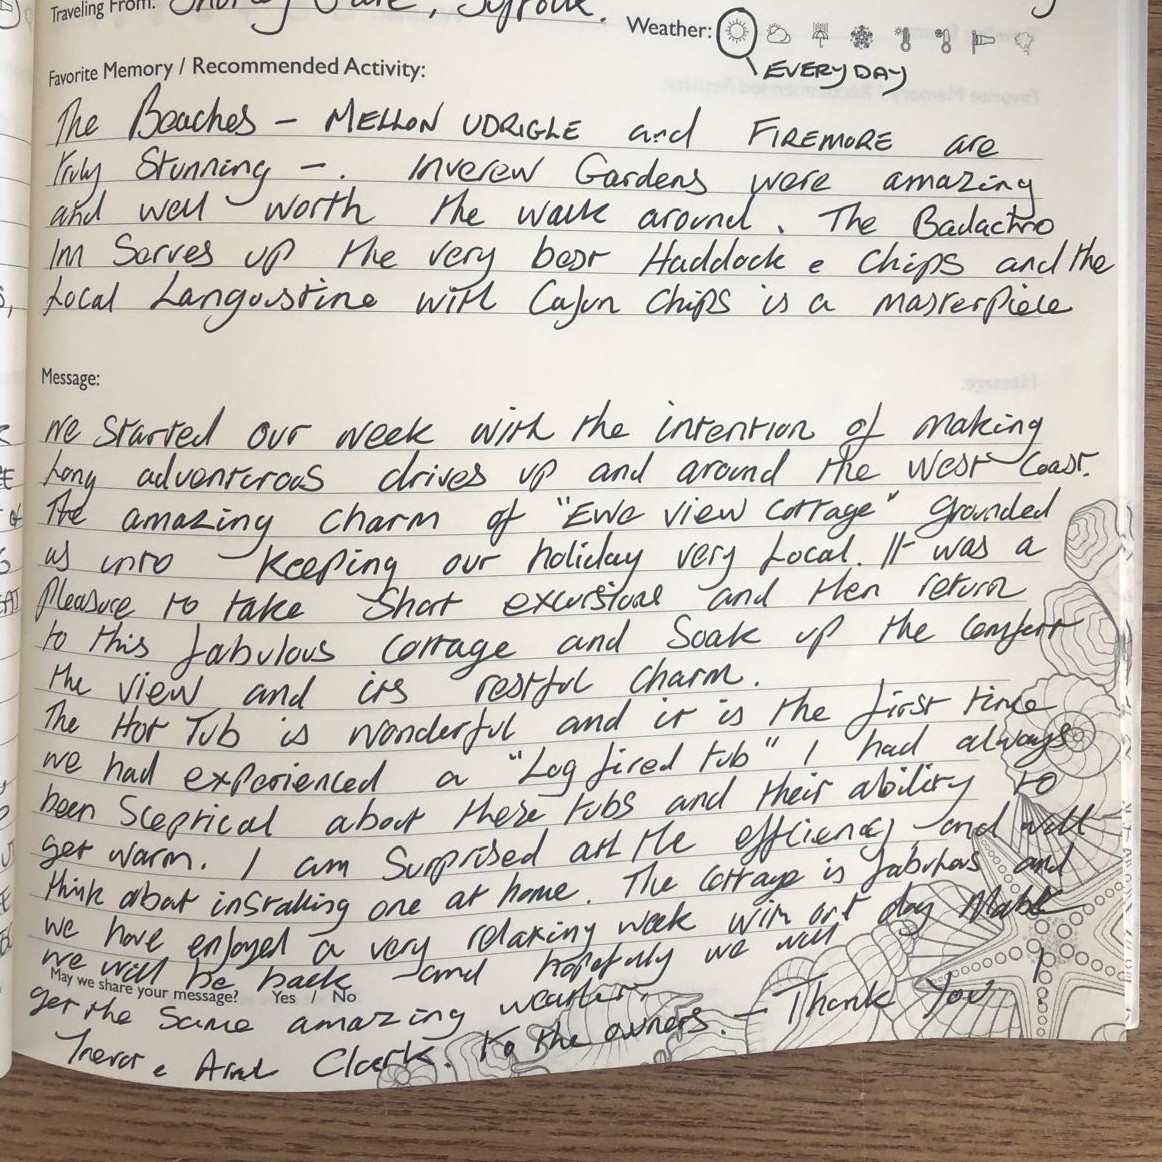 Traveling From: Shotley Gate, Suffolk.
Weather:
EVERY DAY
Favorite Memory / Recommended Activity:
The Beaches - MELLON UDRIGLE and FIREMORE are
truly Stunning -. Inverew Gardens were amazing
and well worth the walk around. The Badachro
Inn Serves up the very best Haddock e Chips and the
Local Langoustine with Cajun Chips is a masterpiece
Message:
We Started our week with the intention of making
Long adventurous drives up and around the West Coast.
The amazing charm of "Ewe view cottage" grounded
us into keeping our holiday very Local. It was a
pleasure to take Short excursions and then return
to this fabulous cottage and Soak up the comfort
the view and its restful charm.
The Hot Tub is wonderful and it is the first time
we had experienced a "Log fired tub" I had always
been Sceptical about these tubs and their ability to
get warm. I am Surprised at the efficiency and will
think about installing one at home. The Cottage is fabulous and
we have enjoyed a very relaxing week with our dog Mable
we will be back and hopefully we will
May we share your message? Yes / No
get the same amazing weather. - Thank You!
Trevor e Clark. to the owners.